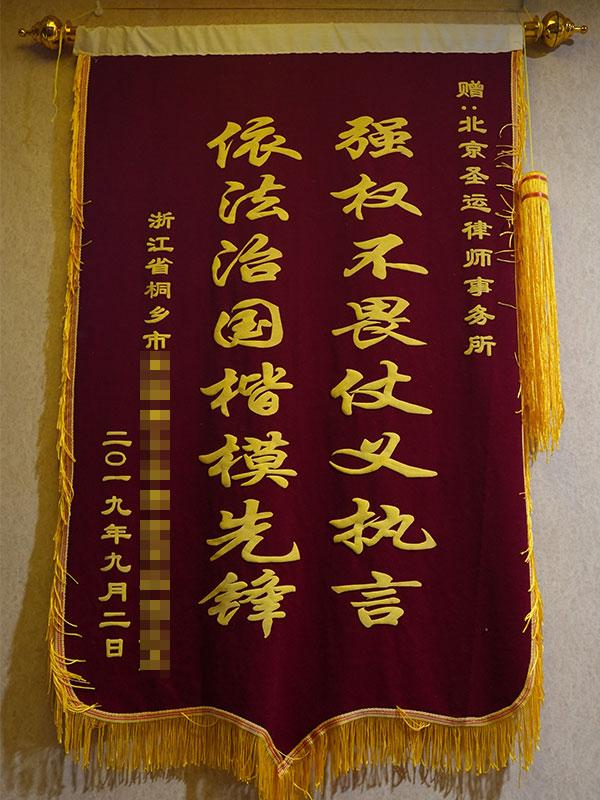 赠:北京圣运律师事务所
强权不畏仗义执言
依法治国楷模先锋
浙江省桐乡市
二〇一九年九月二日